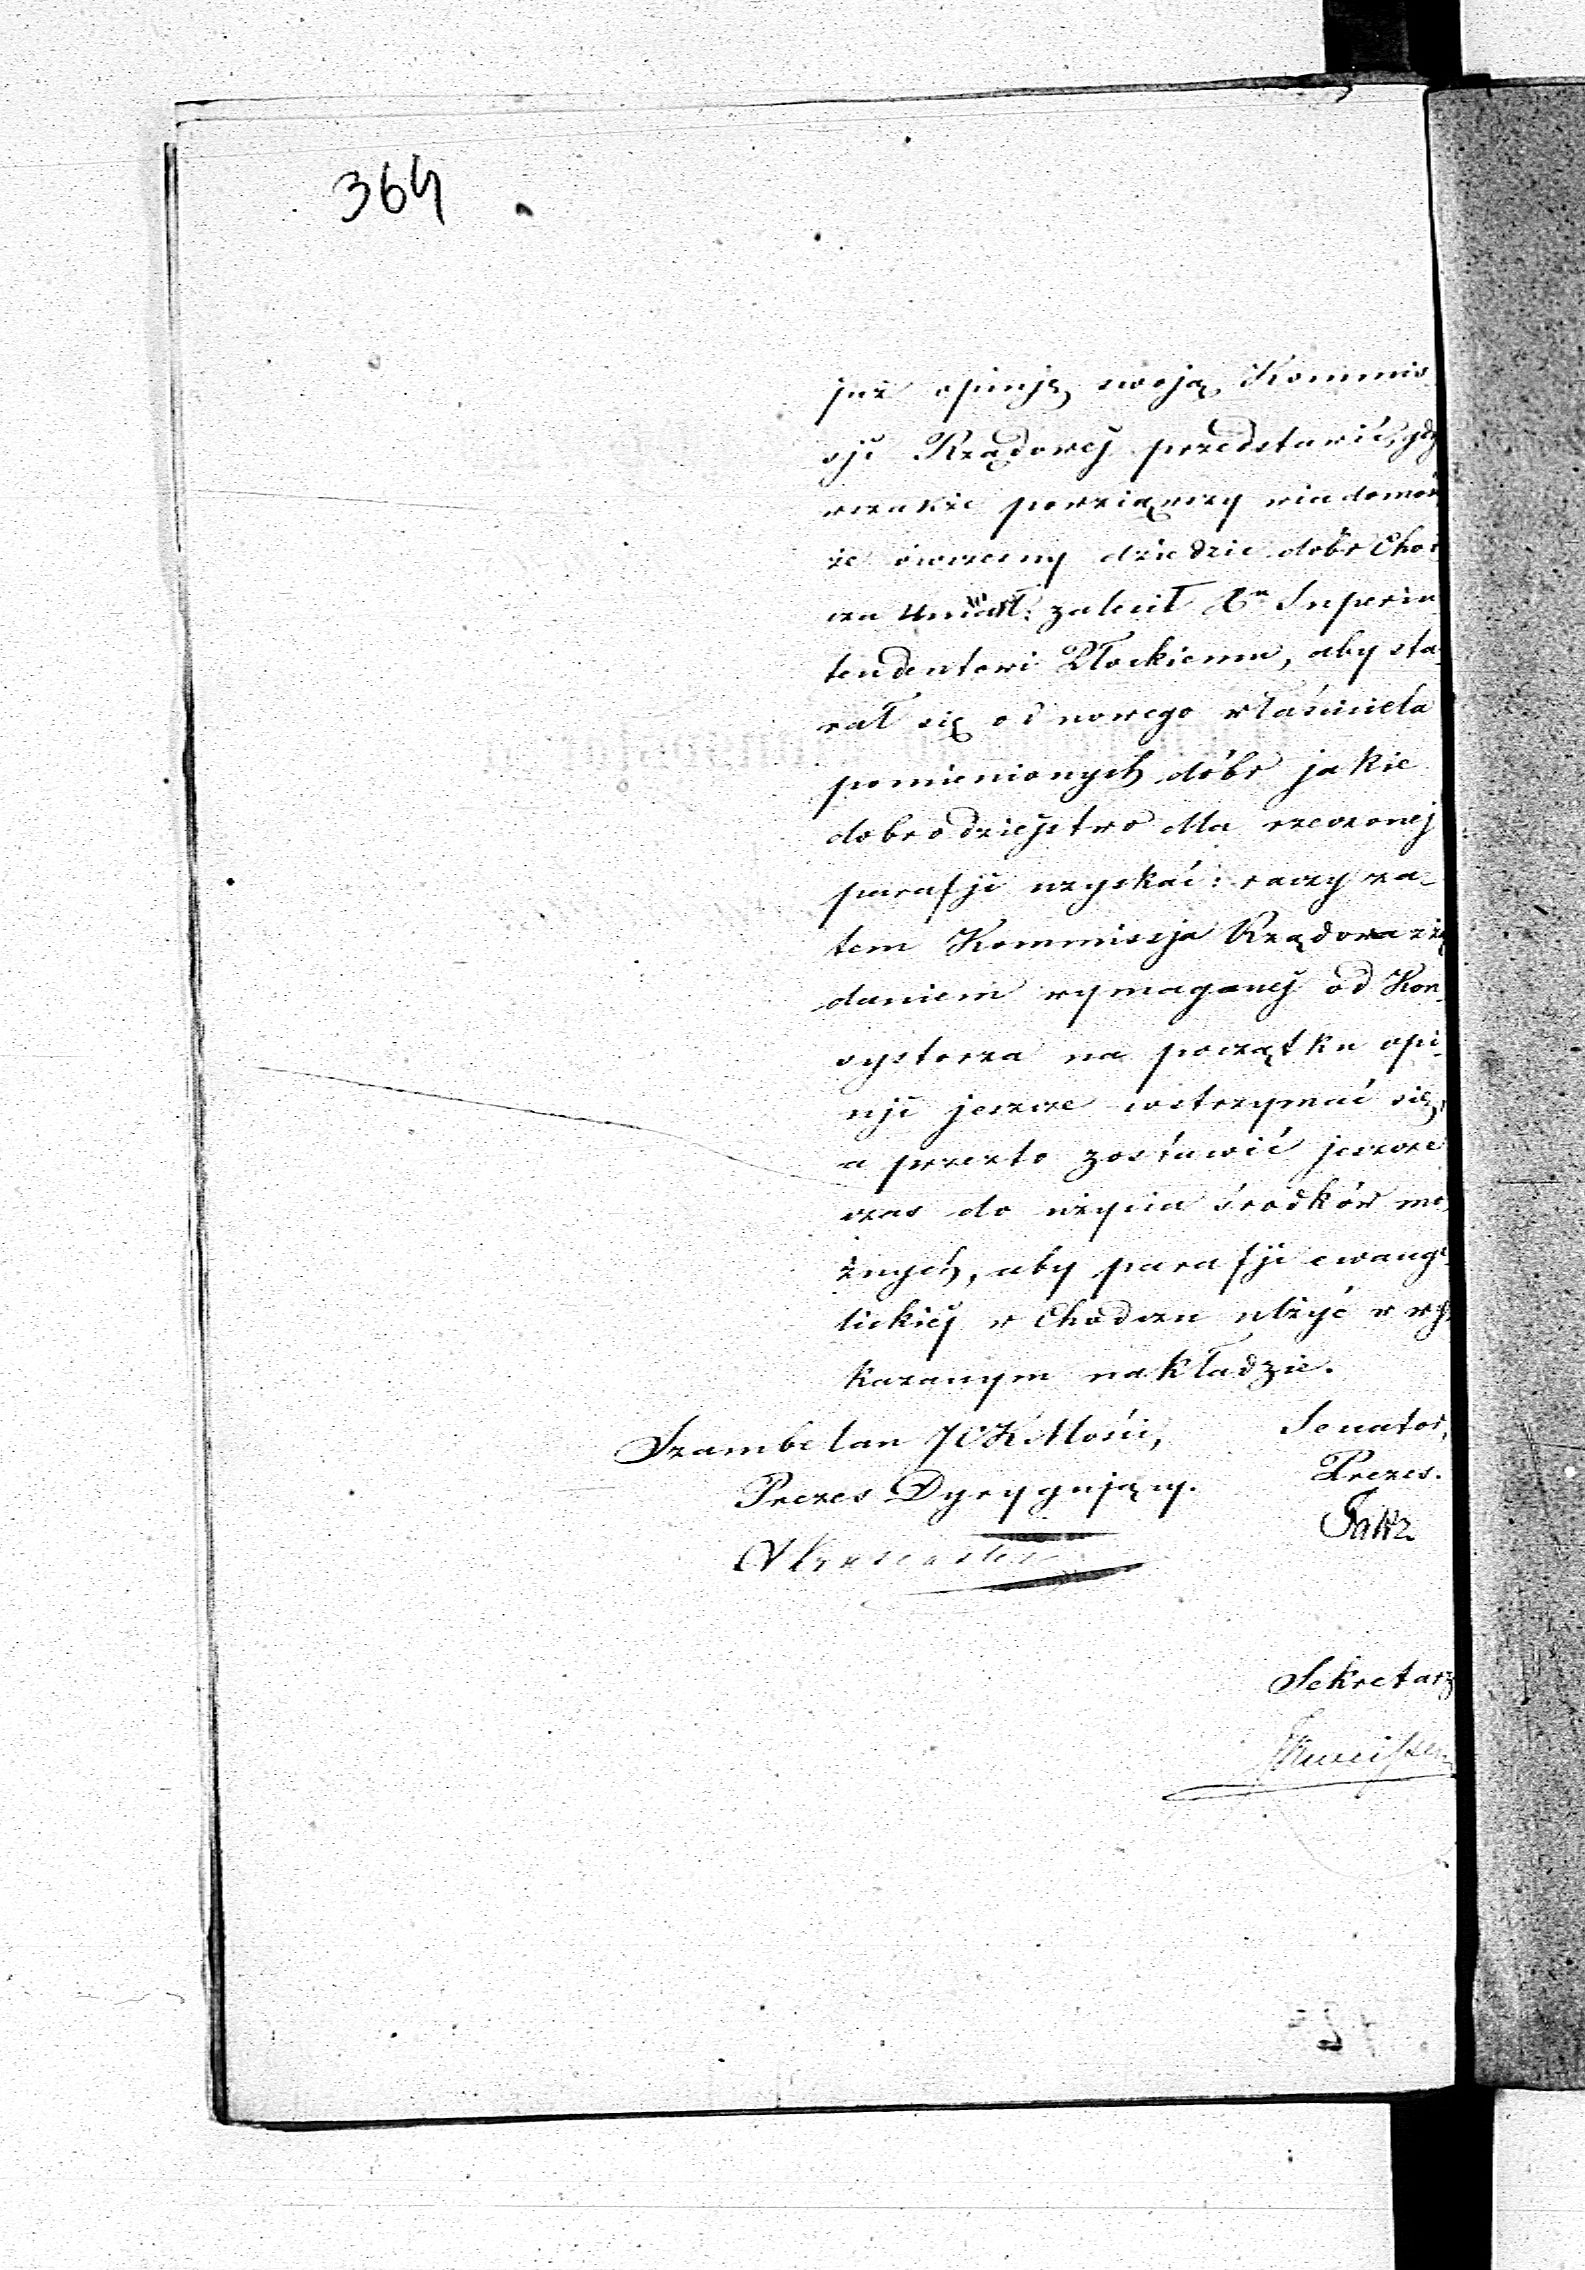 364
już opinję swoją Kommis-
sji Rządowej przedstawić, gdy
wszakże powziąwszy wiadomoś
że ówczesny dziedzic dóbr Chod
cza umarł: zalecił Xu Superin
tendentowi Płockiemu, aby sta-
rał się od nowego właściciela
pomienionych dóbr jakie
dobrodziejstwo dla rzeczonej
parafji uzyskać: raczy za-
tem Kommissja Rządowa z żą
daniem wymaganej od Kon-
systorza na początku opi-
nji jeszcze wstrzymać się,
a przezto zostawić jeszcze
czas do użycia środków mo-
żnych, aby parafji ewange-
lickiej w Chodczu ulżyć w wy-
kazanym nakładzie.
Szambelan JCKMości, Senator,
Prezes Dyrygujący. Prezes.
Sekretarz